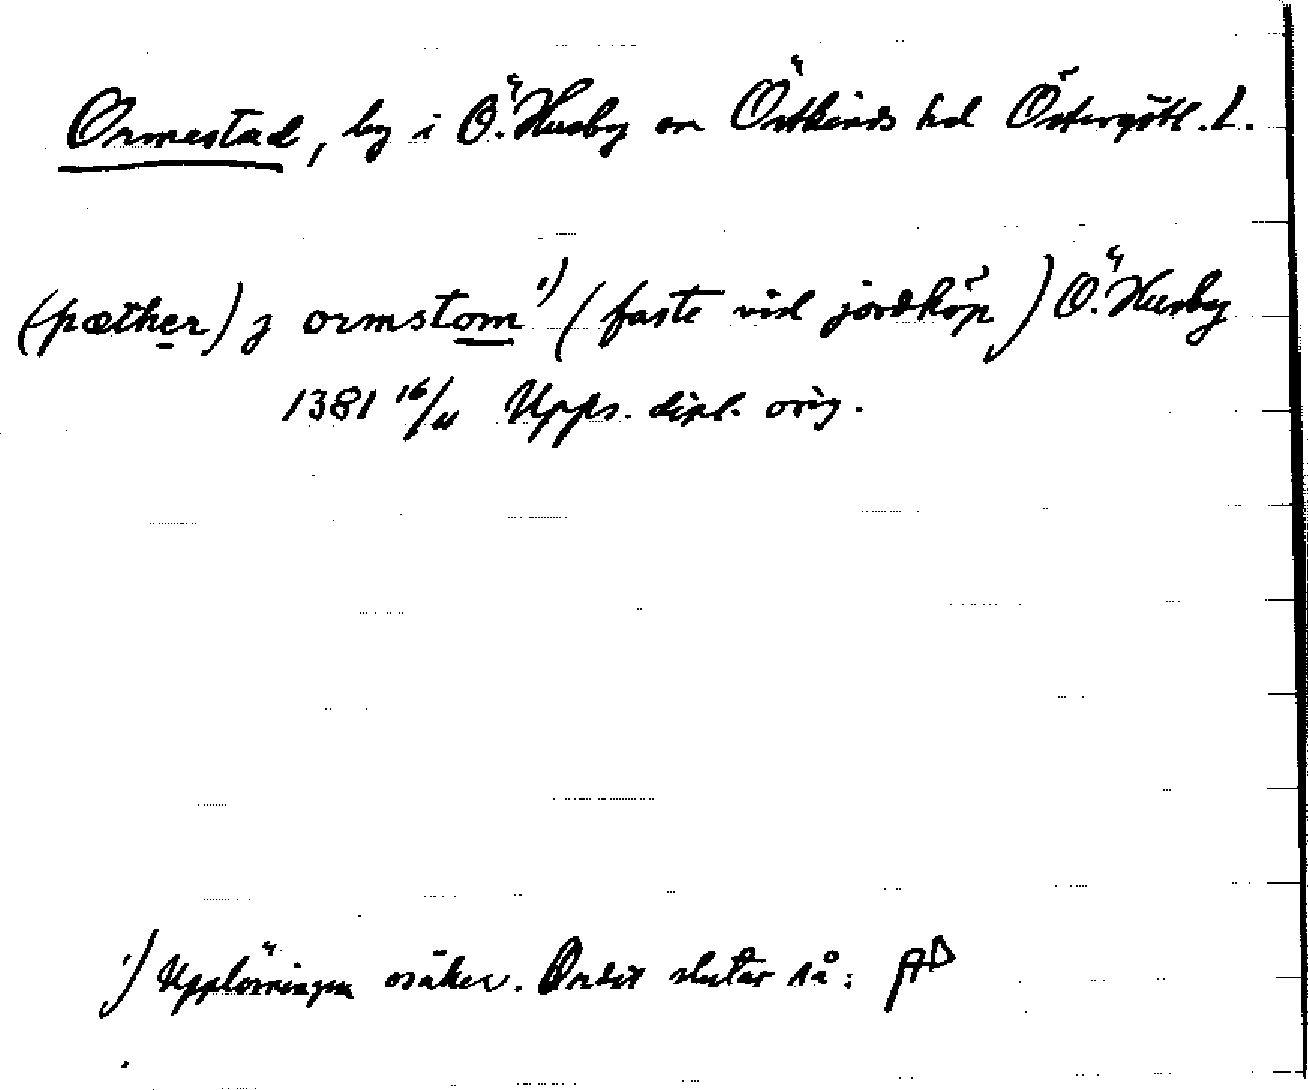 Ormestad, by i Ö. Husby sn Östkinds hd Östergötl. l.
(pæther) j ormstom ¹) (faste vid jordköp) Ö. Husby
1381 16/11 Upps. dipl. orig.
¹) Upplösningen osäker. Ordet slutar så: